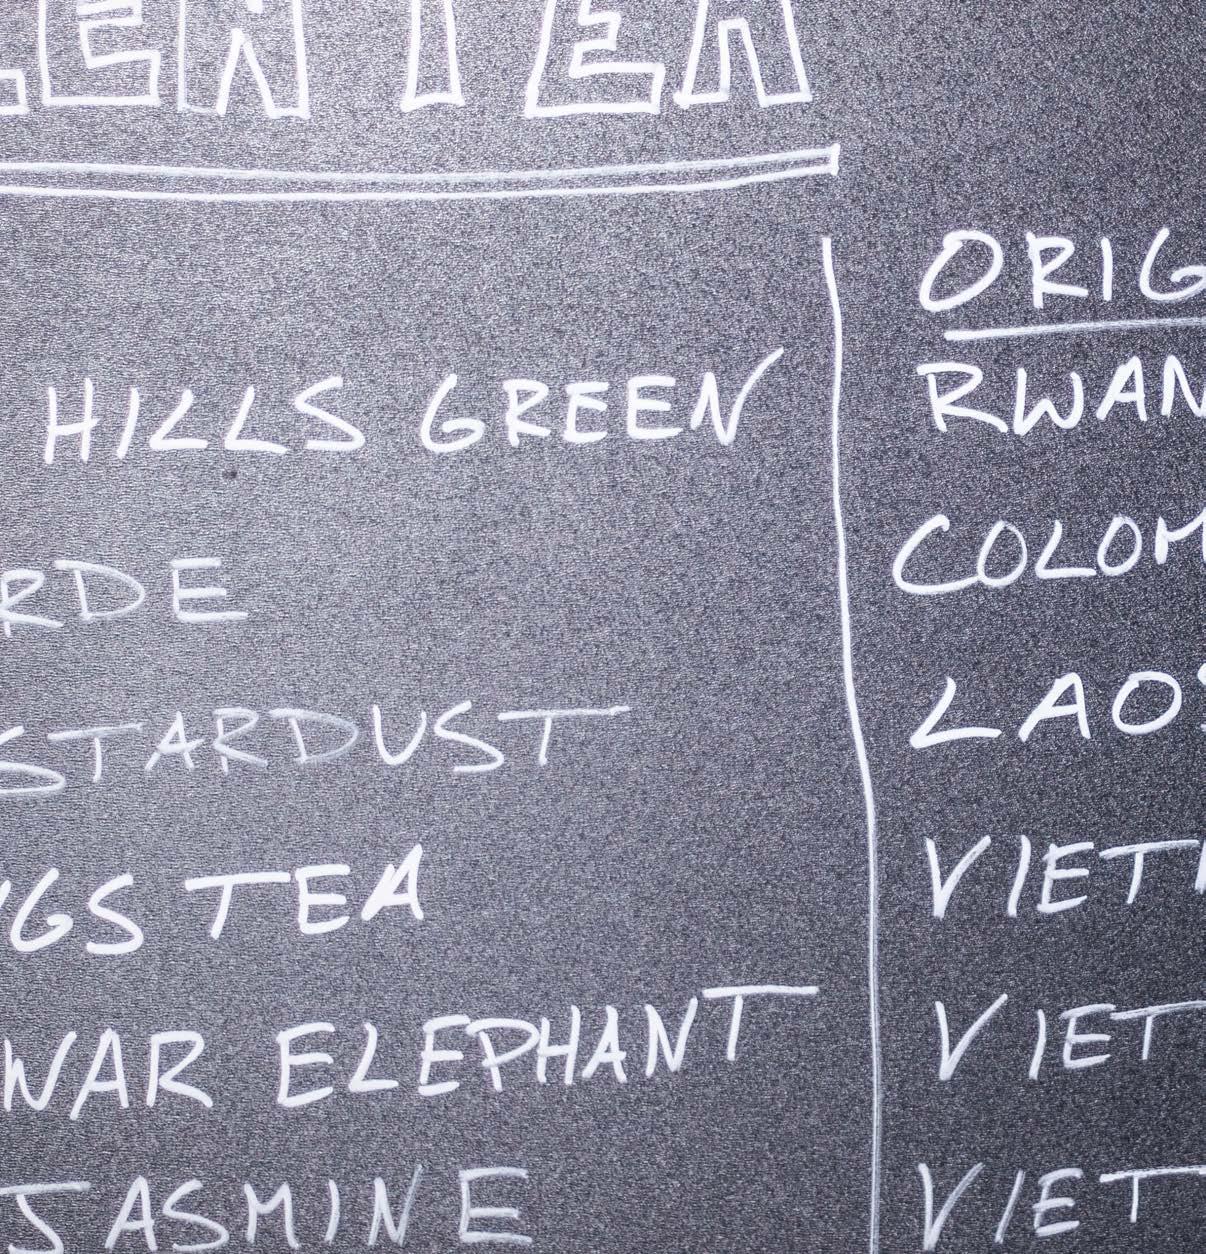 EEN TEA
ORIG
HILLS GREEN RWAN
RDE COLOM
STARDUST LAOS
NGS TEA VIETN
WAR ELEPHANT VIET
JASMINE VIET